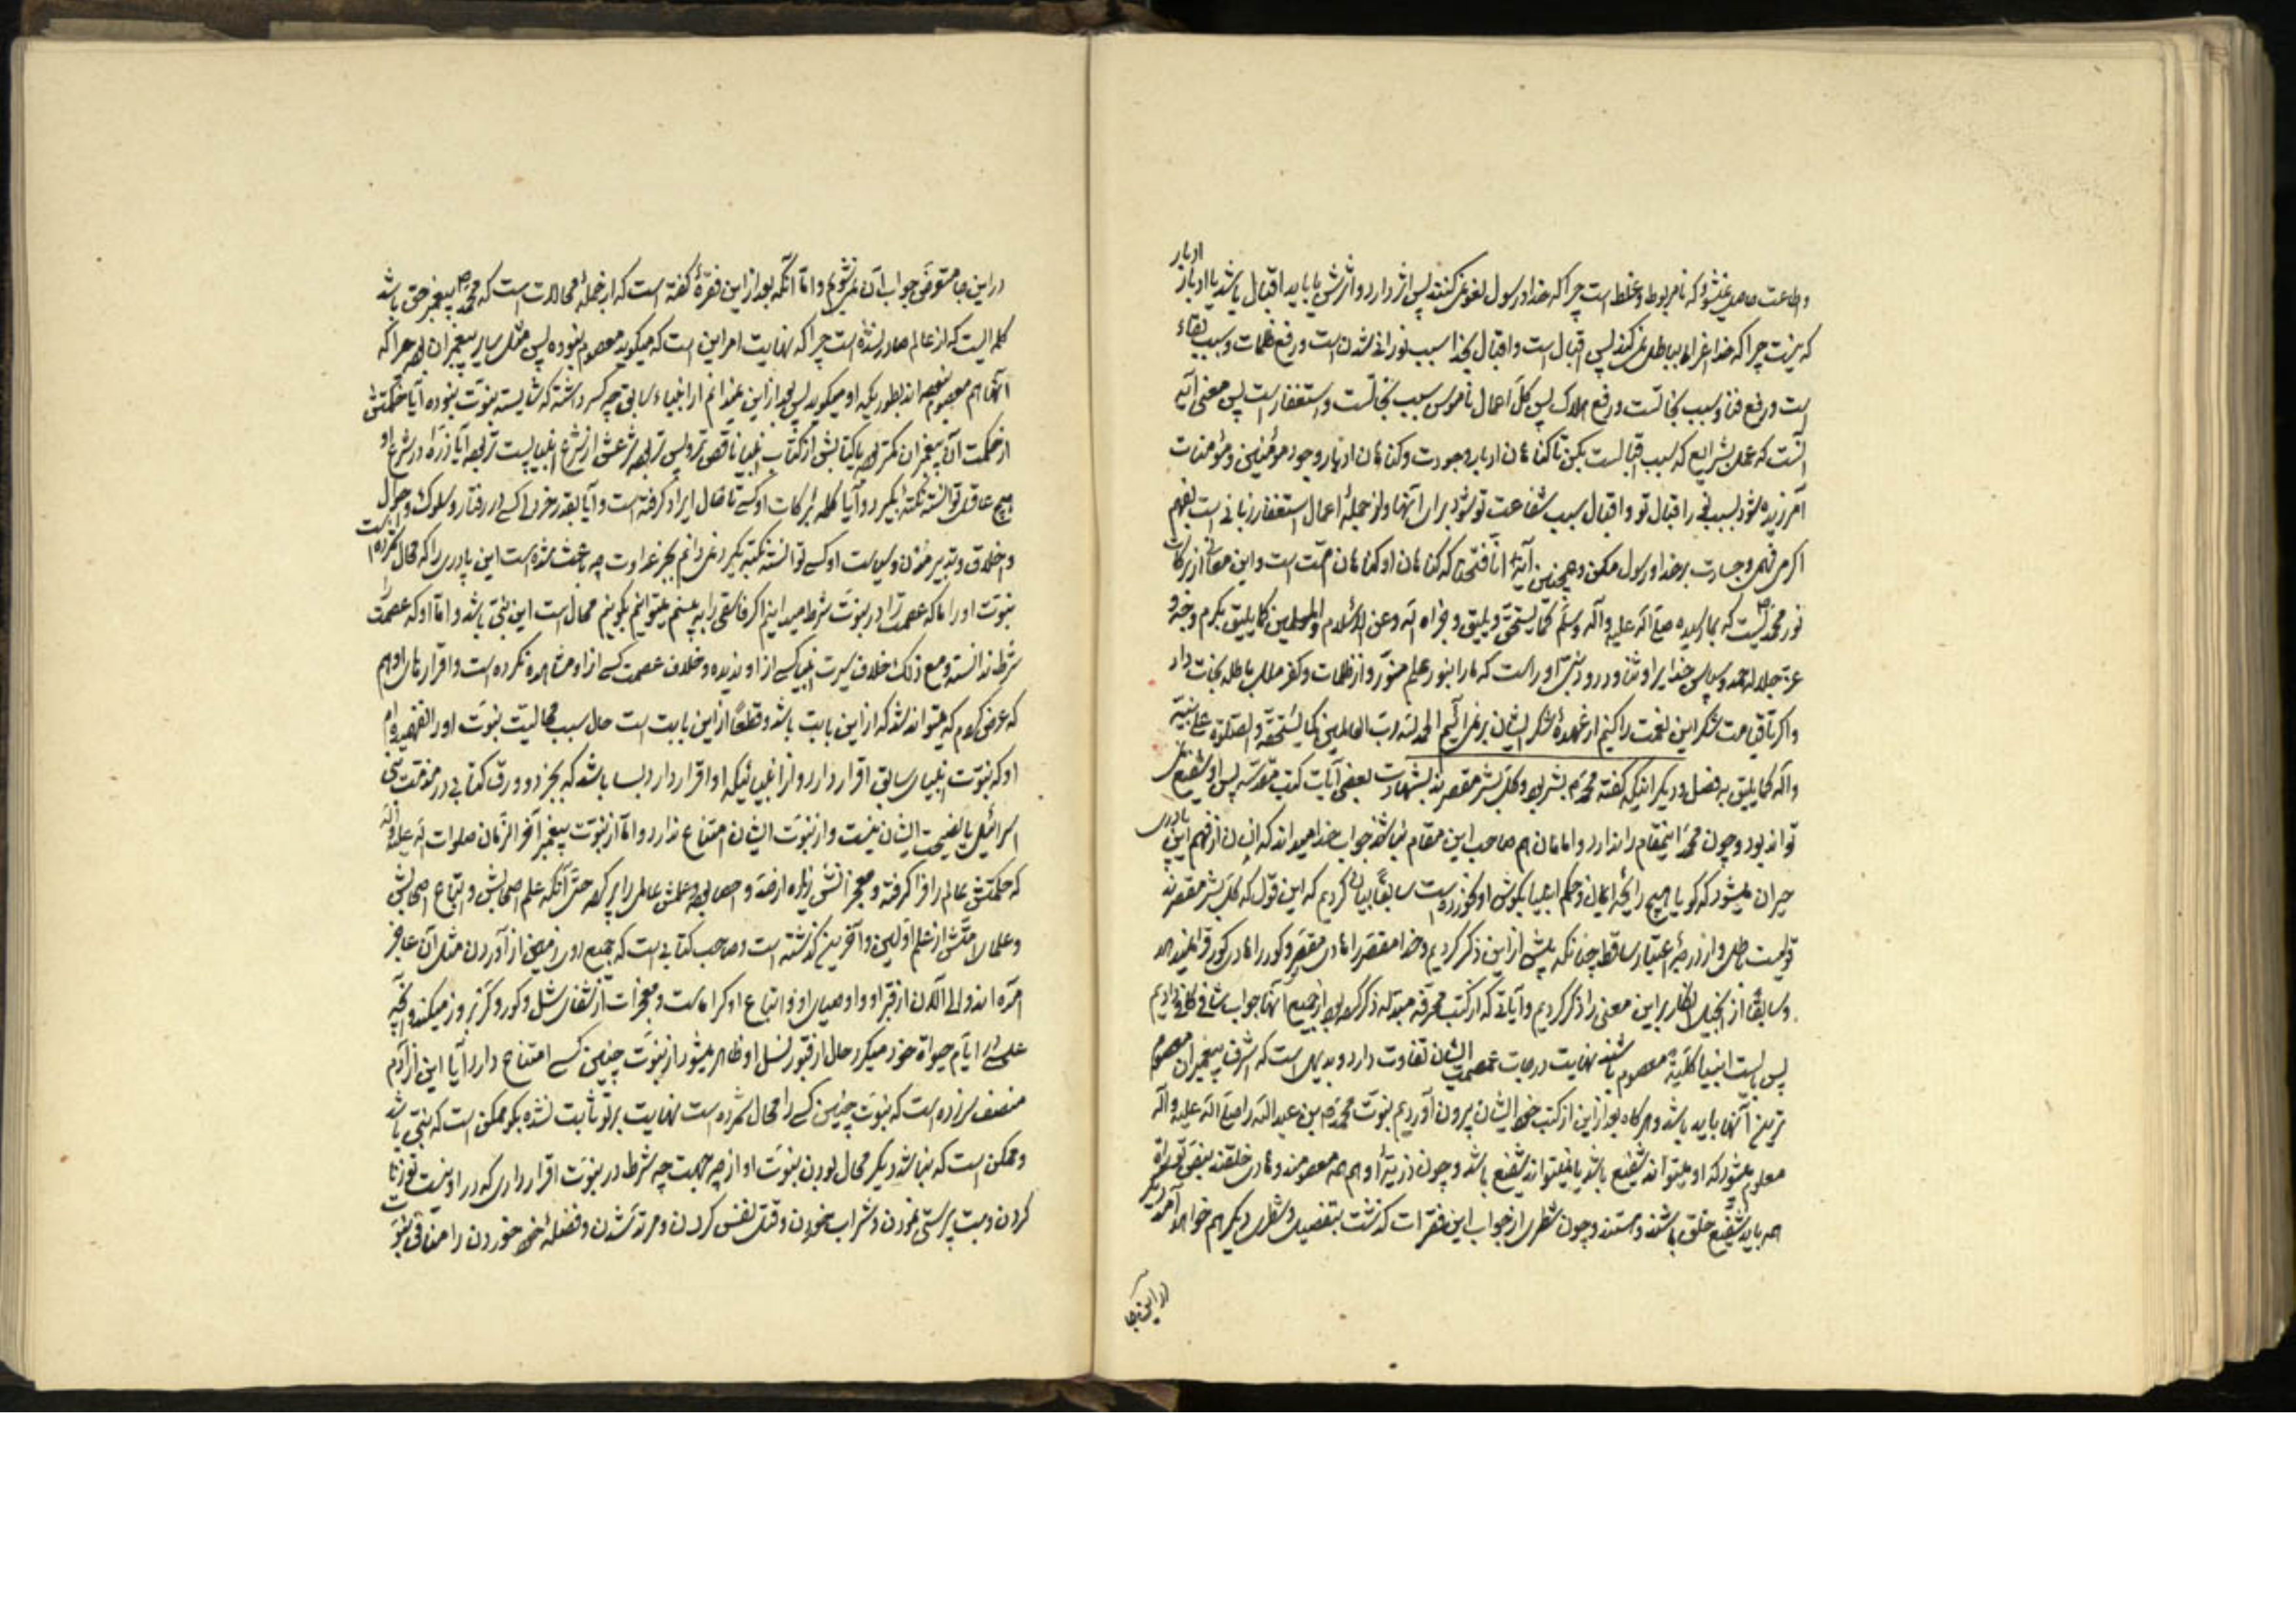 ادبار
و طاعت حاصل نمیشود که نامربوط و غلط است چرا که خدا و رسول لغو نمیکنند پس اثر دارد و اثرش یا باید اقبال باشد یا ادبار
که نیست چرا که خدا اغراء بباطل نمیکند پس اقبال است و اقبال بخدا سبب نورانی شدن است و رفع ظلمات و سبب بقاء
است و رفع فنا و سبب نجاتست و رفع هلاک پس کل اعمال ناموس سبب نجاتست و استغفار است پس معنی آیه
آنست که عمل بشرایع که سبب اقبالست بکن تا گناهان ادبار وجودت و گناهان ادبار وجود مؤمنین و مؤمنات
آمرزیده شود بسبب اقبال تو و اقبال سبب شفاعت تو شود برای آنها و از جمله اعمال استغفار زبانی است بفهم
اگر می فهمی و جسارت بر خدا و رسول مکن و همچنین آیه انا فتحنا که گناهان او گناهان امت است و این معانی از برکات
نور محمدیست که بما رسیده صلی الله علیه و آله و سلم کما یستحق و یلیق و جزاه الله و عن الاسلام و المسلمین کما یلیق بکرم وجهه و
عز جلاله الحمد و سپاس خدایرا و ثنا و درود نبی او راست که ما را بنور علم منور و از ظلمات و کفر ملل باطله نجات داد
و اگر تا قیامت شکر این نعمت را کنیم از عهده شکر ایشان بر نمی آئیم الحمد لله رب العالمین کما یستحقه و الصلوة علی نبیه
و آله کما یلیق بفضل و دیگر اینکه گفته محمد هم بشر بود و کل بشر مقصرند بشهادت بعضی آیات کتب مقدسه پس او شفیع
تواند بود و چون محمد اینمقام را ندارد و امامان هم صاحب این مقام نباشند جواب خدا میداند که انسان از فهم این پادری
حیران میشود که گویا هیچ رایحه ایمان و حکم انبیا بگوش او نخورده است سابقا بیان کردیم که این قول که کل بشر مقصرند
قولیست باطل و از درجه اعتبار ساقط چنانکه پیش از این ذکر کردیم و خدا مقصر را هادی مقصر و کور را هادی کور قرار نمیدهد
و سابقا از انجیل این معنی را ذکر کردیم و آیاتی که از کتب محرفه مبدله ذکر کرده بود از جمیع آنها جواب شافی کافی دادیم
پس بایست انبیا کلیة معصوم باشند نهایت درجات عصمت ایشان تفاوت دارد و بدیهی است که اشرف پیغمبران معصوم
ترین آنها باید باشد و هرگاه بعد از این از کتب خود ایشان بیرون آوردیم نبوت محمد بن عبدالله را صلی الله علیه و آله
معلوم میشود که او میتواند شفیع باشد یا نمیتواند شفیع باشد و چون ذریه او هم همه معصومند و هادی خلقند بنص توریة
همه باید شفیع خلق باشند و هستند و چون شطری از جواب این فقرات گذشت بتفصیل و شطری دیگر هم خواهد آمد دیگر
در این جا
در این جا متعرض جواب آن نمیشویم و اما آنکه بعد از این فقره گفته است که از جمله محالات است که محمد ص پیغمبر حق باشد
کلمه ایست که از عالم صادر نشده است چرا که نهایت امر این است که میگوید معصوم نبوده پس مثل سایر پیغمبران بود چرا که
آنها هم معصوم نبوده اند بطوریکه او میگوید پس بعد از این نمیدانم از انبیاء سابق چه کسر داشته که شایسته نبوت نبوده آیا حکمتش
از حکمت آن پیغمبران کمتر بود یا کتابش از کتاب انبیا ناقص تر و پس تر بود یا شرعش از شرع انبیا پست تر بود آیا ذره در شرع او
هیچ عاقلی توانسته نکته بگیرد و آیا کلمه از کلمات او کسی تا حال ایراد گرفته است و آیا بقدر خردلی کسی در رفتار و سلوک و احوال
و اخلاق و تدبیر منزل و سیاست او کسی توانسته نکته بگیرد نمی دانم بجز عداوت چه باعث شده است این پادری را که محال شمرده است
نبوت او را ما که عصمت را در نبوت شرط میدانیم اگر فاسقی را ببینیم میتوانیم بگوئیم محال است این نبی باشد و اما او که عصمت را
شرط ندانسته و مع ذلک خلاف سیرت انبیا کسی از او ندیده و خلاف عصمت کسی از او مشاهده نکرده است و اقرار ما را هم
که عرض کردم که میتواند شد که از این بابت باشد و قطعا از این بابت است حال سبب محالیت نبوت او را نفهمیده ام
او که نبوت انبیای سابق اقرار دارد و از انبیائیکه او اقرار دارد بسا باشد که بجز دو ورق کتابی در مذمت بنی
اسرائیل یا نصیحت ایشان نیست و از نبوت ایشان امتناع ندارد و اما از نبوت پیغمبر آخر الزمان صلوات الله علیه و آله
که حکمتش عالم را فرا گرفته و معجزاتش زیاده از حد و احصا بود و علمش عالم را پر کرده حتی آنکه علم اصحابش و اتباع اصحابش
و علمای امتش از علم اولین و آخرین گذشته است و صاحب کتابی است که جمیع از آوردن مثل آن عاجز
آمده اند و الی الآن از قبر او و اوصیای او و اتباع او کرامات و معجزات از شفای شل و کور و کر بروز میکند و آنچه
عیسی در ایام حیوة خود میکرد حال از قبور نسل او ظاهر میشود از نبوت چنین کسی امتناع دارد آیا این از آدم
منصف سر زده است که نبوت چنین کسی را محال شمرده است نهایت بر تو ثابت نشده بگو ممکن است که نبی باشد
و ممکن است که نباشد دیگر محال بودن نبوت او از چه جهت چه شرط در نبوت اقرار داری که در او نیست تو زنا
کردن و بت پرستی نمودن و شراب خوردن و قتل نفس کردن و مرتد شدن و فضله خود خوردن را منافی نبوت